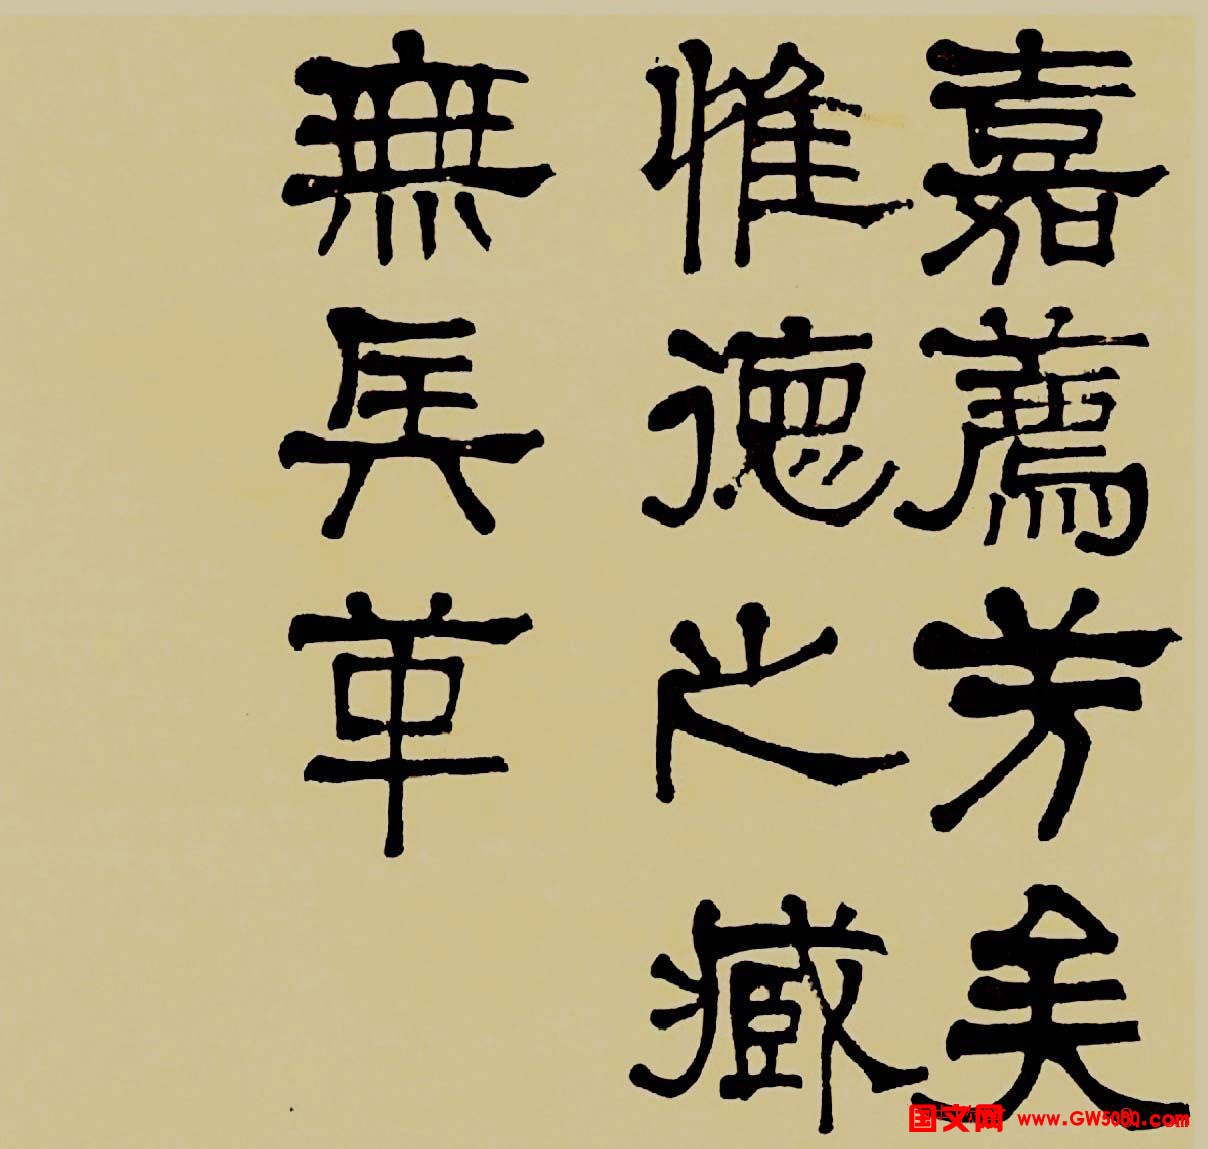 嘉薦芳美
惟德之臧
無兵革
国文网 www.GW5000.com